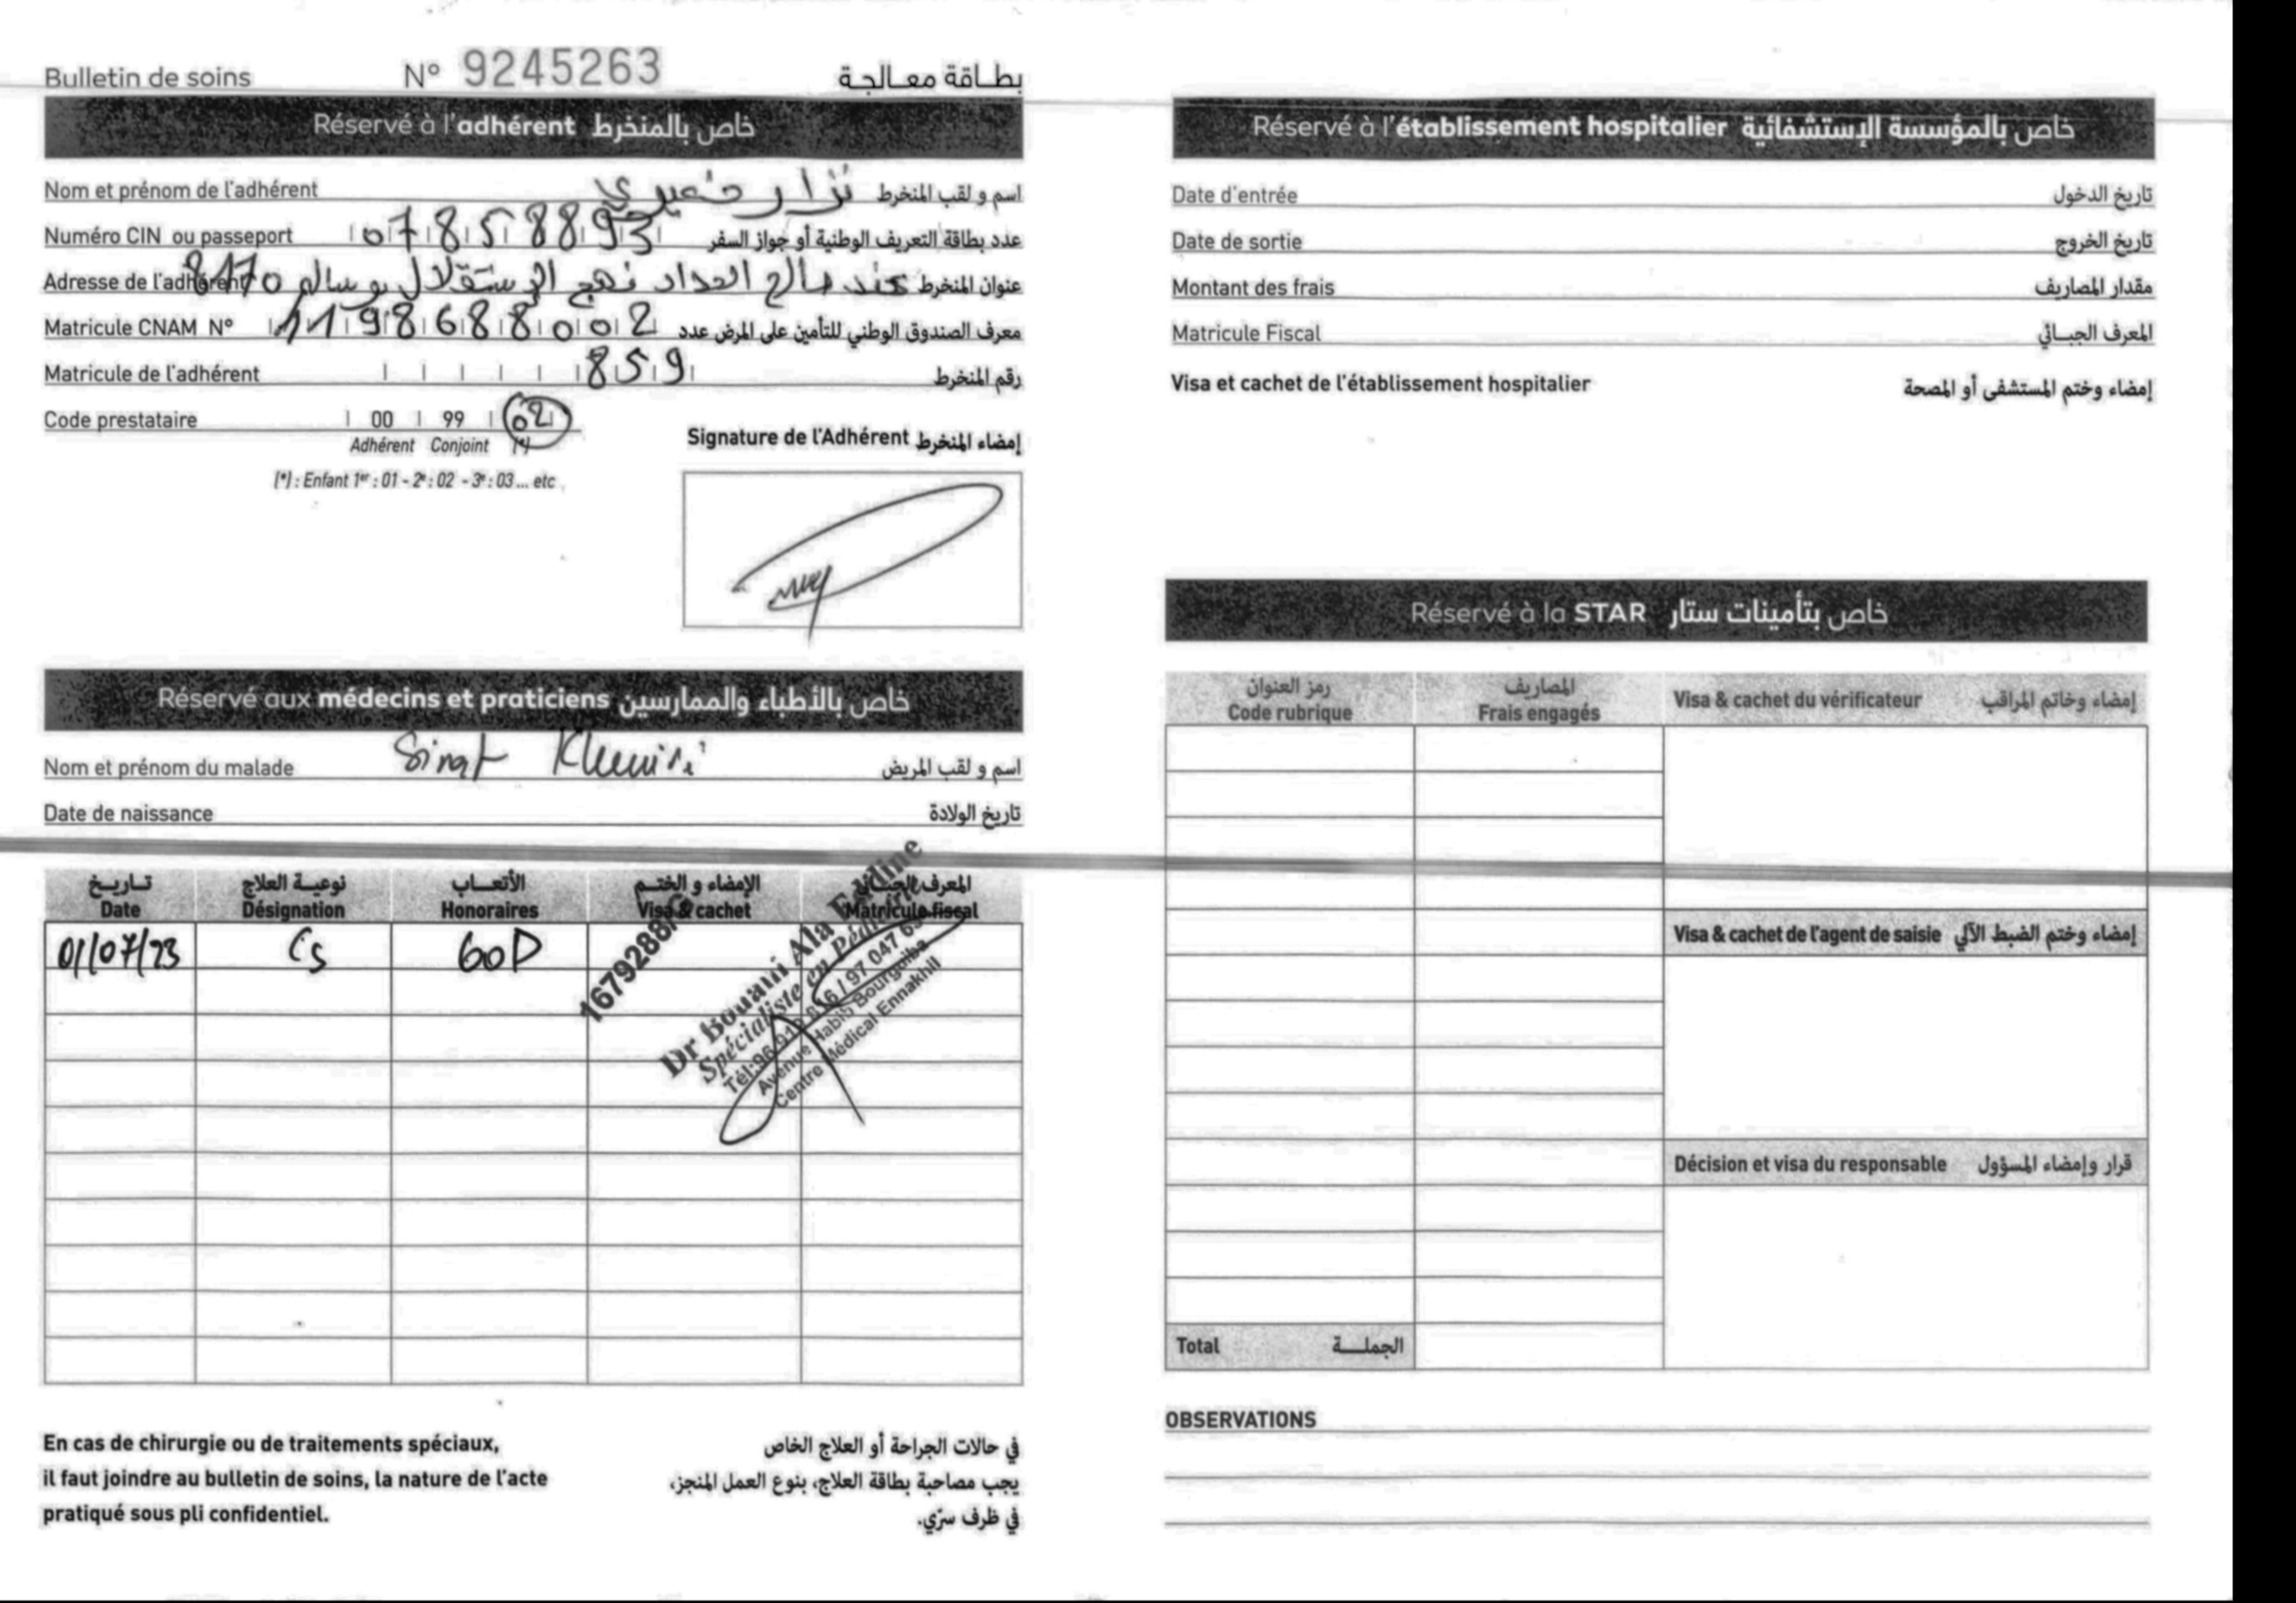 Bulletin de soins N° 9245263 بطاقة معالجة
Réservé à l'adhérent خاص بالمنخرط
Nom et prénom de l'adhérent نزار خميري اسم و لقب المنخرط
Numéro CIN ou passeport 07858893 عدد بطاقة التعريف الوطنية أو جواز السفر
Adresse de l'adhérent عند صالح الحداد نهج الإستقلال بوسالم 8170 عنوان المنخرط
Matricule CNAM N° 1198688002 معرف الصندوق الوطني للتأمين على المرض عدد
Matricule de l'adhérent 859 رقم المنخرط
Code prestataire 00 99 02
Adhérent Conjoint (*)
(*) : Enfant 1er : 01 - 2e : 02 - 3e : 03 ... etc
Signature de l'Adhérent إمضاء المنخرط
Réservé aux médecins et praticiens خاص بالأطباء والممارسين
Nom et prénom du malade Khmiri اسم و لقب المريض
Date de naissance تاريخ الولادة
تاريخ نوعية العلاج الأتعاب الإمضاء و الختم المعرف الجبائي
Date Désignation Honoraires Visa & cachet Matricule fiscal
01/07/23 Cs 60D
1679288/G
Dr Bouani Ala Eddine
Spécialiste en Pédiatrie
Tél:96 / 97 047
Avenue Habib Bourguiba
Centre Médical Ennakhil
En cas de chirurgie ou de traitements spéciaux,
il faut joindre au bulletin de soins, la nature de l'acte
pratiqué sous pli confidentiel.
في حالات الجراحة أو العلاج الخاص
يجب مصاحبة بطاقة العلاج، بنوع العمل المنجز،
في ظرف سرّي.
Réservé à l'établissement hospitalier خاص بالمؤسسة الإستشفائية
Date d'entrée تاريخ الدخول
Date de sortie تاريخ الخروج
Montant des frais مقدار المصاريف
Matricule Fiscal المعرف الجبائي
Visa et cachet de l'établissement hospitalier إمضاء وختم المستشفى أو المصحة
Réservé à la STAR خاص بتأمينات ستار
رمز العنوان المصاريف
Code rubrique Frais engagés Visa & cachet du vérificateur إمضاء وخاتم المراقب
Visa & cachet de l'agent de saisie إمضاء وختم الضبط الآلي
Décision et visa du responsable قرار وإمضاء المسؤول
Total الجملة
OBSERVATIONS